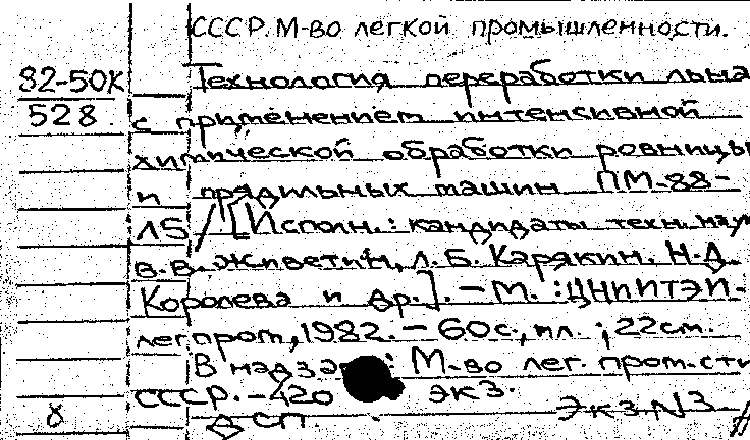 СССР. М-во легкой промышленности.
82-50К
528
Технология переработки льна
с применением интенсивной
химической обработки ровницы
и прядильных машин ПМ-88-
Л5 / [Исполн.: кандидаты техн. наук
В.В. Живетин, Л.Б. Карякин, Н.Д.
Королева и др.]. - М. : ЦНИИТЭИ-
легпром, 1982. - 60с., ил. ; 22см.
В надзаг.: М-во лег. пром-сти
СССР. - 420 экз.
ДСП. Экз. N3